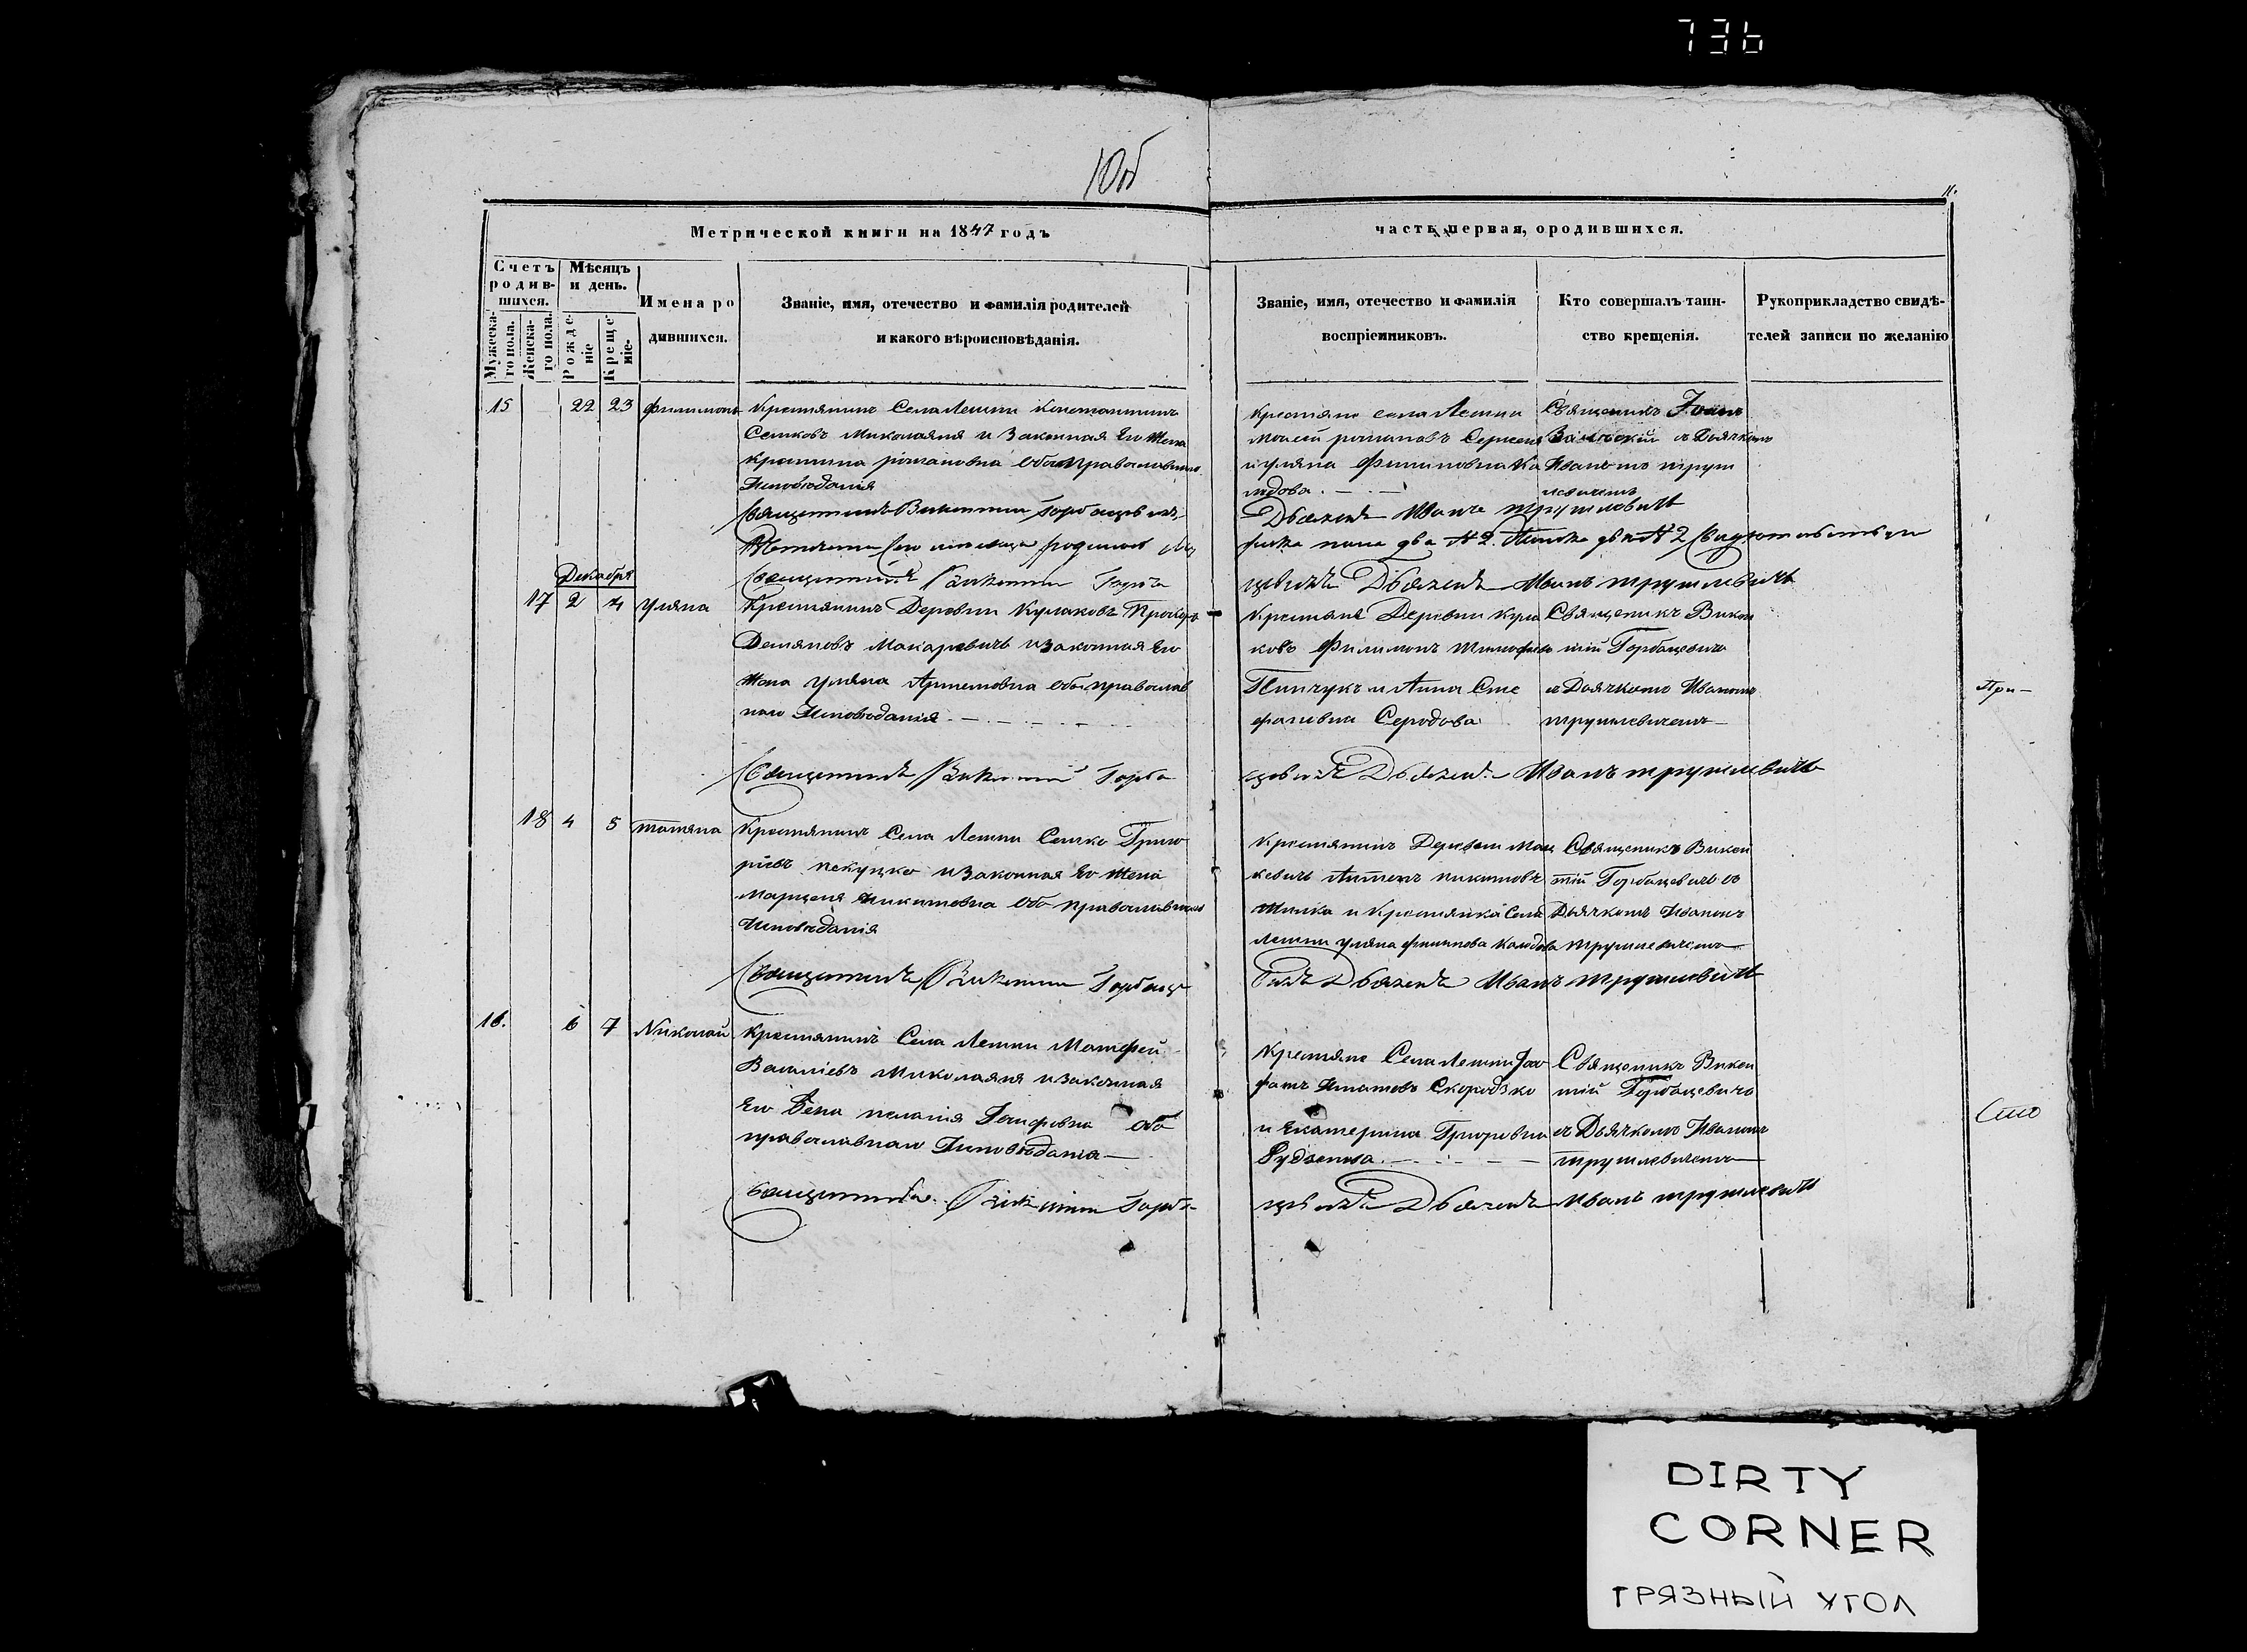 736
10об
11.
Метрической книги на 1847 годъ
часть первая, ородившихся.
Счетъ родившихся.
Мужеска-го пола.
Женска-го пола.
Мѣсяцъ и день.
Рожде-ніе
Креще-ніе.
Имена родившихся.
Званіе, имя, отечество и фамилія родителей
и какого вѣроисповѣданія.
Званіе, имя, отечество и фамилія
воспріемниковъ.
Кто совершалъ таин-
ство крещенія.
Рукоприкладство свидѣ-
телей записи по желанію
15 22 23 Филимонъ
Крестянинъ Села Лешни Константинъ
Семковъ Миколаяня и Законная Его Жена
Кристина романовна оба Православнаго
Исповѣданія
Крестяне села Лешни
Моисей романовъ
и уляна Филиповна Ка
лядова
Священикъ Іоанъ
съ Дьячкомъ
Иваномъ трут
невичемъ
Священникъ Викентий Горбацевичъ
Дьячекъ Иванъ трутневичъ
сего месяца родилось
пола два № 2.
Декабря
Священникъ Викентий Горба
цевичъ Дьячекъ Иванъ трутневичъ
17 2 4 уляна
Крестянинъ Деревни Кулаковъ Прокоръ
Демяновъ Макаревичъ и Законная Его
Жена Уляна Артемовна оба православ
наго Исповѣданія
Крестяне Деревни Кула
ковъ Филимонъ Тимофеевъ
Пинчукъ и Анна Сте
фановна Середова
Священикъ Викен
тій Горбацевичъ
съ Дьячкомъ Иваномъ
трутневичемъ
При-
Священникъ Викентий Горба
цевичъ Дьячекъ Иванъ трутневичъ
18 4 5 татяна
Крестянинъ Села Лешни Семко Григо
ріевъ пекуцко и Законная Его Жена
Марцеля Никитовна оба православнаго
Исповѣданія
Крестянинъ Деревни Мац
кевичъ Антонъ никитовъ
и Крестянка Села
Лешни уляна филипова Калядова
Священикъ Викен
тій Горбацевичъ съ
Дьячкомъ Иваномъ
Трутневичемъ
Священникъ Викентий Горбаце
вичъ Дьячекъ Иванъ трутневичъ
16. 6 7 Николай
Крестянинъ Села Лешни Матфей
Василіевъ Миколаяня и Законная
Его Жена пелагія Іосифовна оба
православнаго Исповѣданія
Крестяне Села Лешни Іоо
фатъ Игнатовъ Скородзко
и Екатерина Григоревна
Рудзенкова
Священикъ Викен
тій Горбацевичъ
съ Дьячкомъ Иваномъ
трутневичемъ
Сто
Священникъ Викентий Горба
цевичъ Дьячекъ Иванъ трутневичъ
DIRTY
CORNER
ГРЯЗНЫЙ УГОЛ